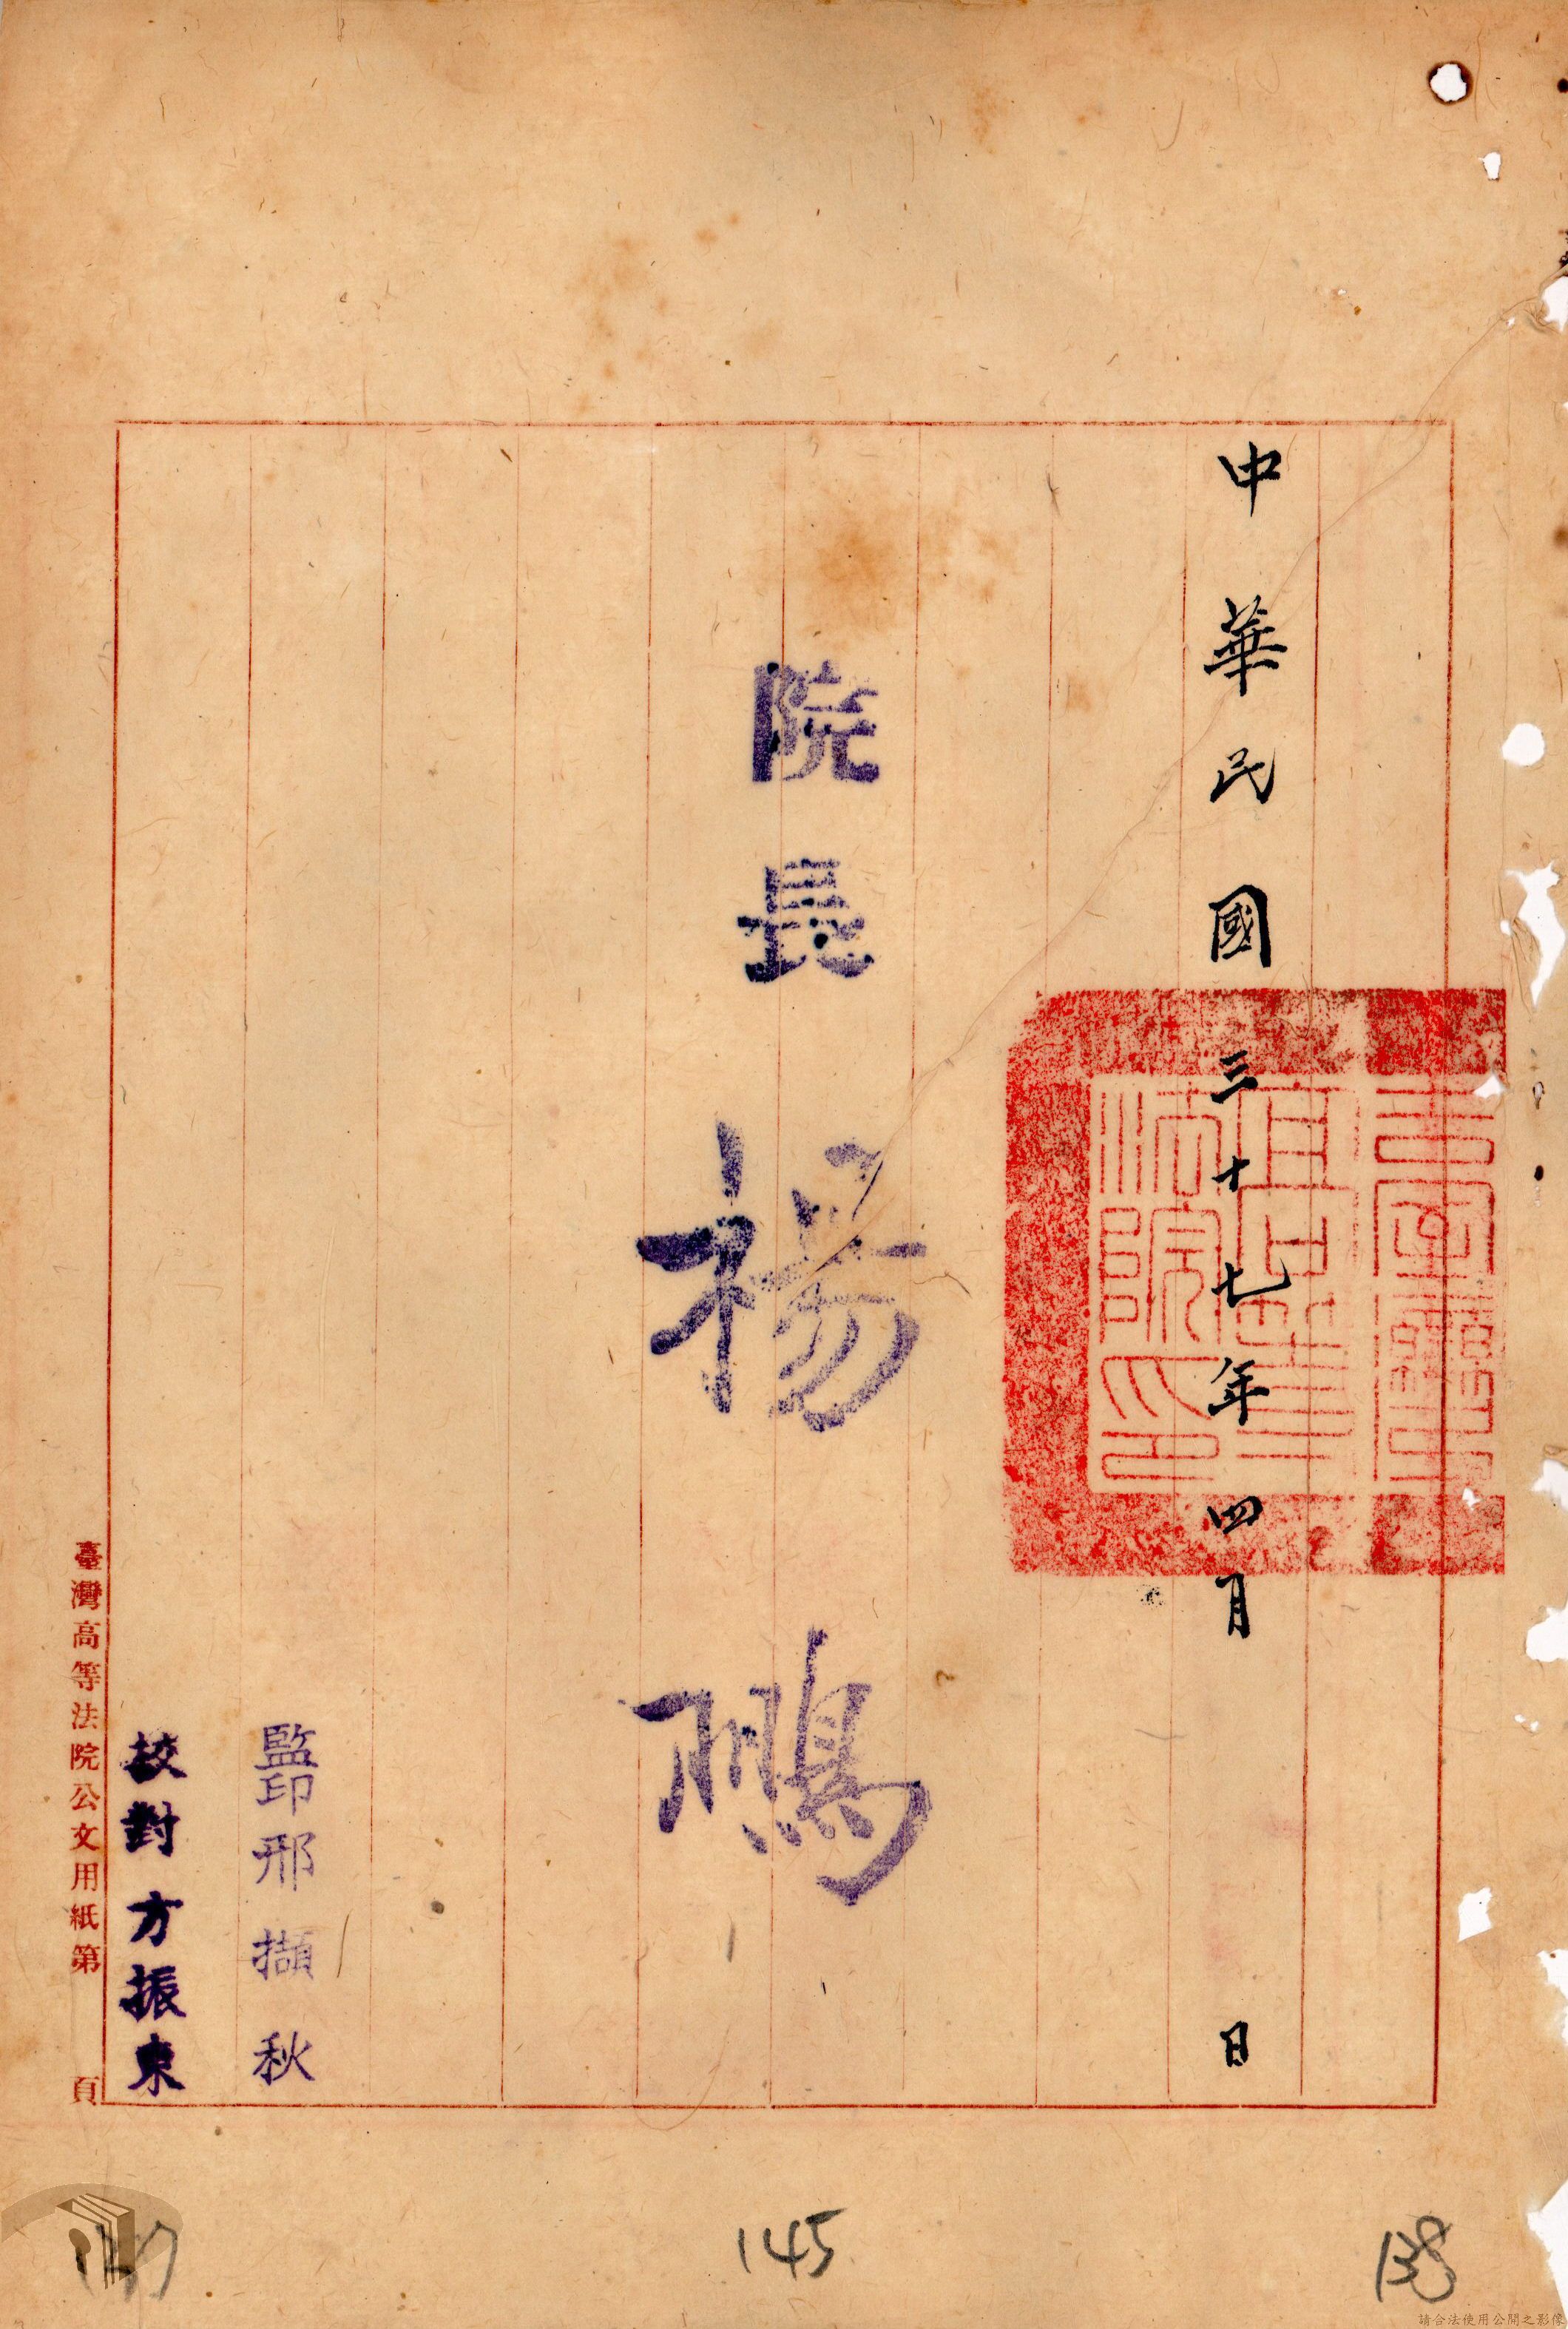 中華民國三十七年四月 日
臺灣高等法院印
院長 楊鵬
監印邢擷秋
校對方振東
臺灣高等法院公文用紙第 頁
145
138
請合法使用公開之影像